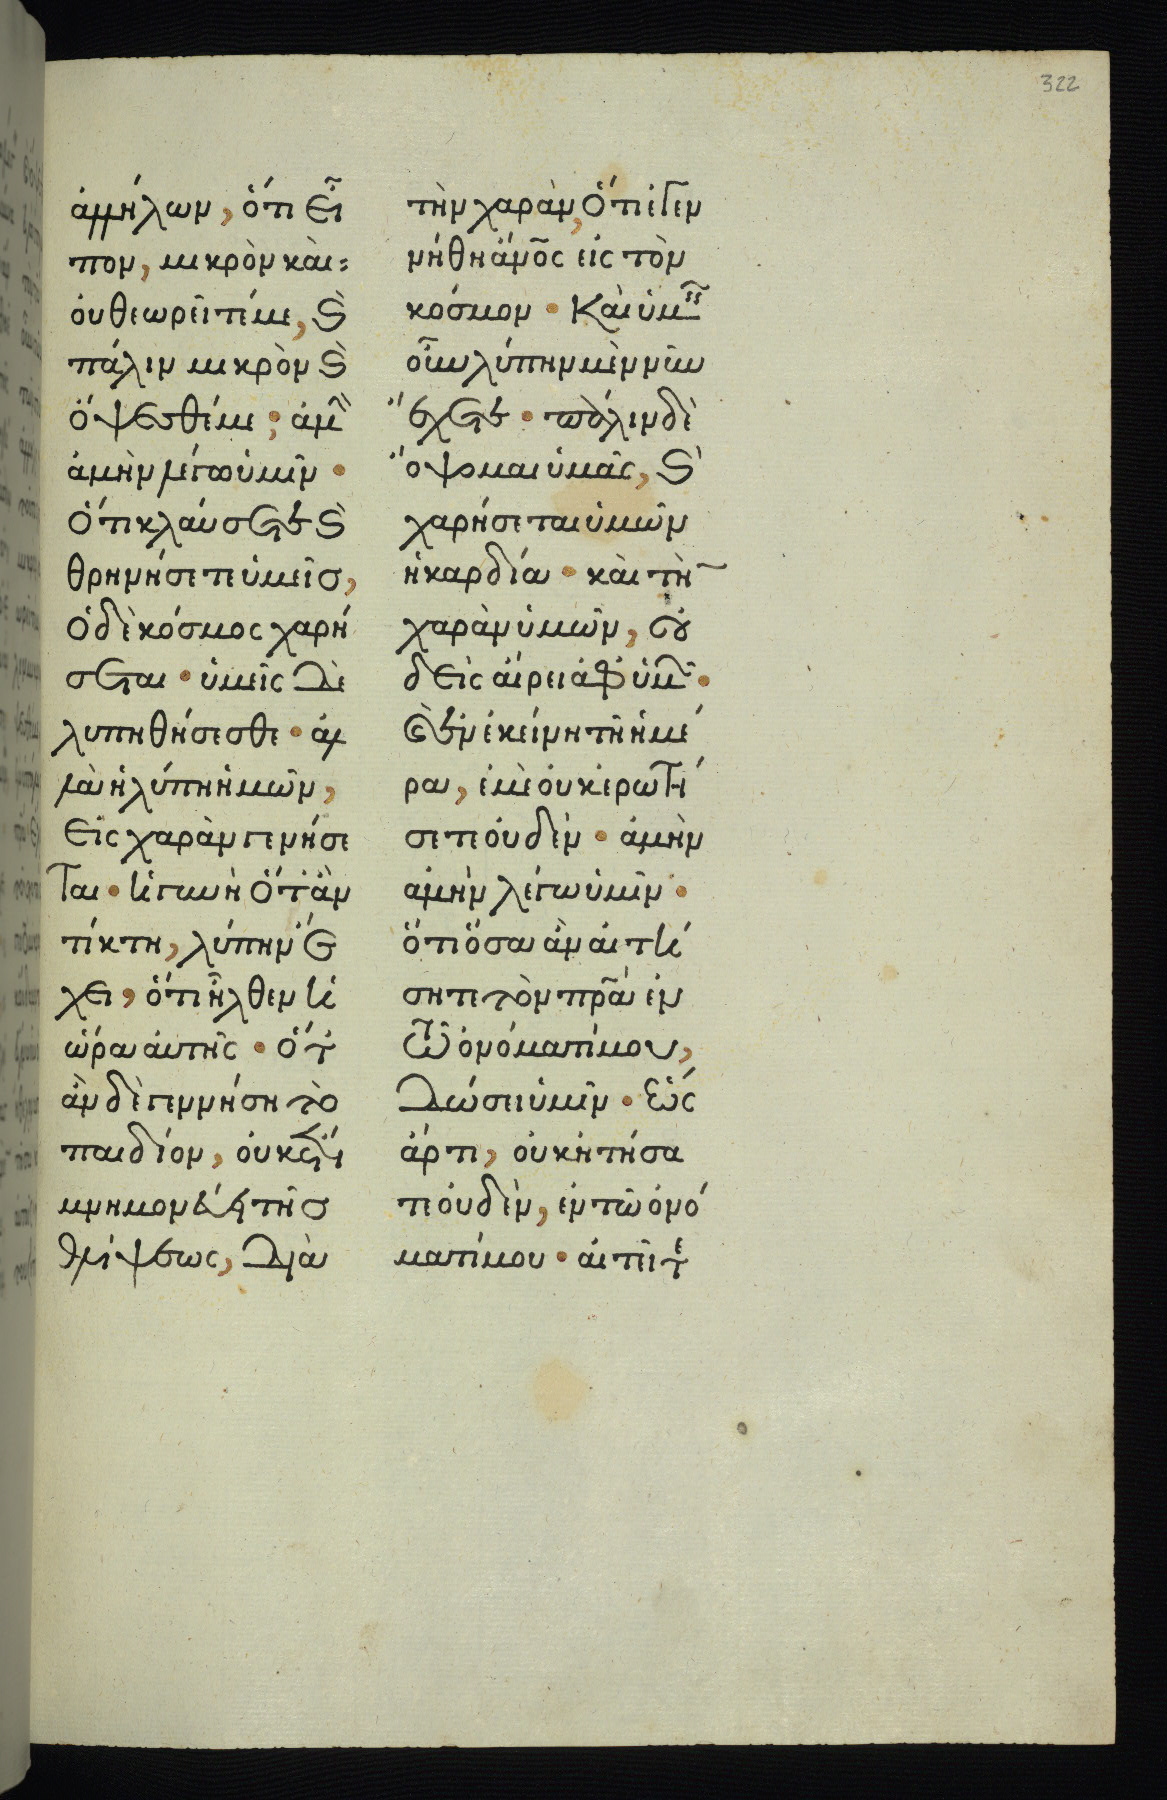 322
ἀλλήλων, ὅτι εἶ
πον, μικρὸν καὶ
οὐ θεωρεῖτέ με, ϗ
πάλιν μικρὸν ϗ
ὄψεσθέ με; ἀμὴν
ἀμὴν λέγω ὑμῖν ·
ὅτι κλαύσετε ϗ
θρηνήσετε ὑμεῖσ,
ὁ δὲ κόσμος χαρή
σεται · ὑμεῖς δὲ
λυπηθήσεσθε · ἀλ
λὰ ἡ λύπη ἡμῶν,
εἰς χαρὰν γενήσε
ται · ἡ γυνὴ ὅτὰν
τίκτη, λύπην ἔ
χει, ὅτι ἦλθεν ἡ
ὥρα αὐτῆς · ὅτ
ἂν δὲ γεννήση τὸ
παιδίον, οὐκ ἔτι
μνημονεύει τῆσ
θλίψεως, διὰ
τὴν χαρὰν, ὅτι ἐγεν
νήθη ἄνος εἰς τὸν
κόσμον · καὶ ὑμεῖς
οὖν λύπην μὲν νῦν
ἔχετε · πάλιν δὲ
ὄψομαι ὑμᾶς, ϗ
χαρήσεται ὑμῶν
ἡ καρδία · καὶ τὴν
χαρὰν ὑμῶν, οὐ
δεὶς αἴρει ἀφ ὑμῶν ·
ϗ ἐν ἐκείνη τῆ ἡμέ
ρα, ἐμὲ οὐκ ἐρωτή
σετε οὐδέν · ἀμὴν
ἀμὴν λέγω ὑμῖν ·
ὅτι ὅσα ἂν αἰτή
σητε τὸν πρα ἐν
τῶ ὀνόματί μου,
δώσει ὑμῖν · ἕως
ἄρτι, οὐκ ἠτήσα
τε οὐδὲν, ἐν τῶ ὀνό
ματί μου · αἰτεῖτε